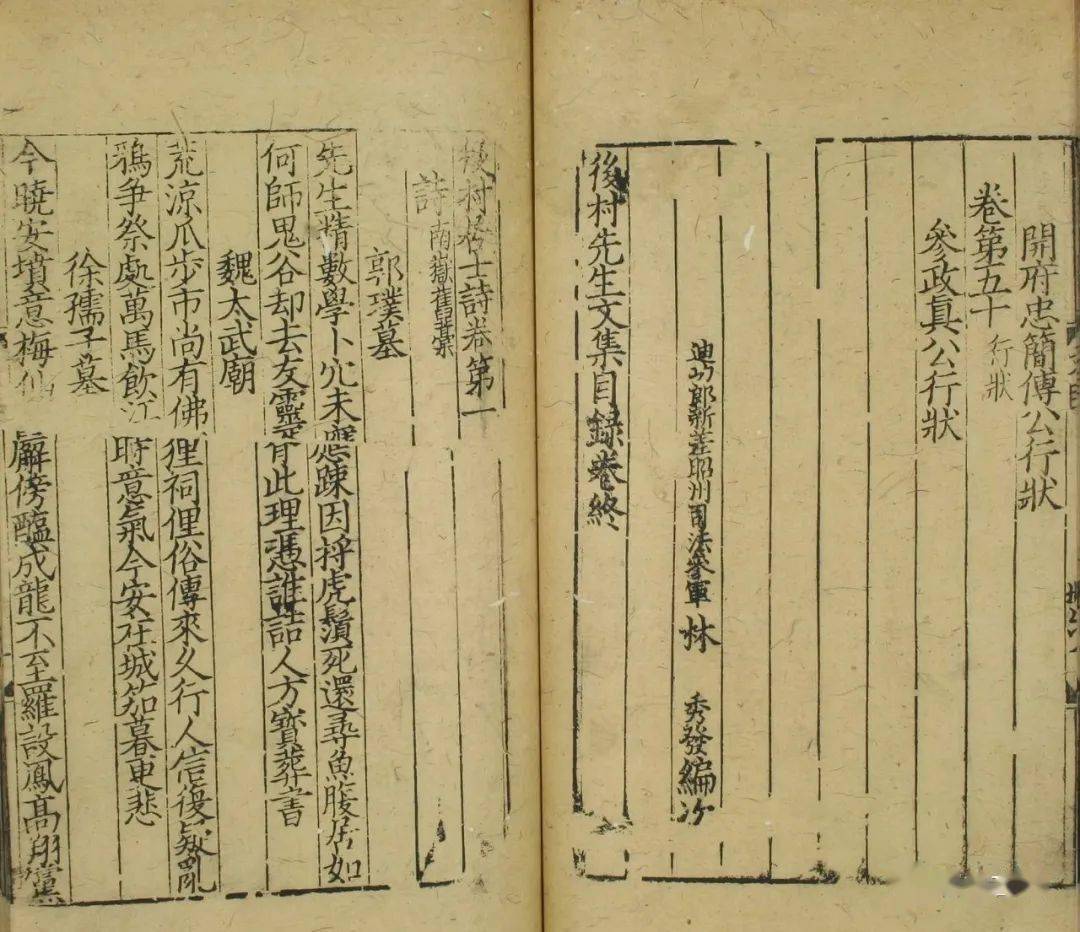 開府忠簡傅公行狀
卷第五十 行狀
參政真公行狀
迪功郎新差昭州司法參軍 林 秀發 編次
後村先生文集目錄卷終
後村居士詩卷第一
詩 南嶽舊藁
郭璞墓
先生精數學卜穴未應踈因捋虎鬚死還尋魚腹居如
何師鬼谷却去友靈胥此理憑誰詰人方寳葬書
魏太武廟
荒涼瓜步市尚有佛狸祠俚俗傳來久行人信復疑亂
鴉争祭處萬馬飲江時意氣今安在城笳暮更悲
徐孺子墓
今曉安墳意梅仙廨傍醯成龍不至羅設鳳高翔黨